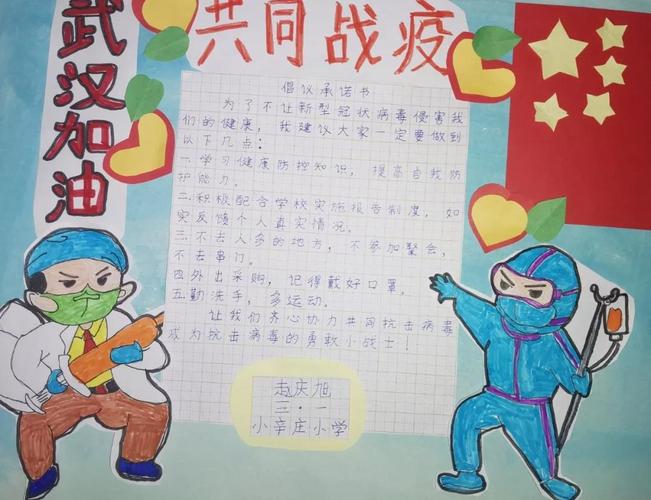 武汉加油
共同战疫
倡议承诺书
为了不让新型冠状病毒侵害我
们的健康，我建议大家一定要做到
以下几点：
一.学习健康防控知识，提高自我防
护能力。
二.积极配合学校实施报告制度，如
实反馈个人真实情况。
三.不去人多的地方，不参加聚会，
不去串门。
四.外出采购，记得戴好口罩。
五.勤洗手，多运动。
让我们齐心协力共同抗击病毒
成为抗击病毒的勇敢小战士！
赵庆旭
三·一
小辛庄小学